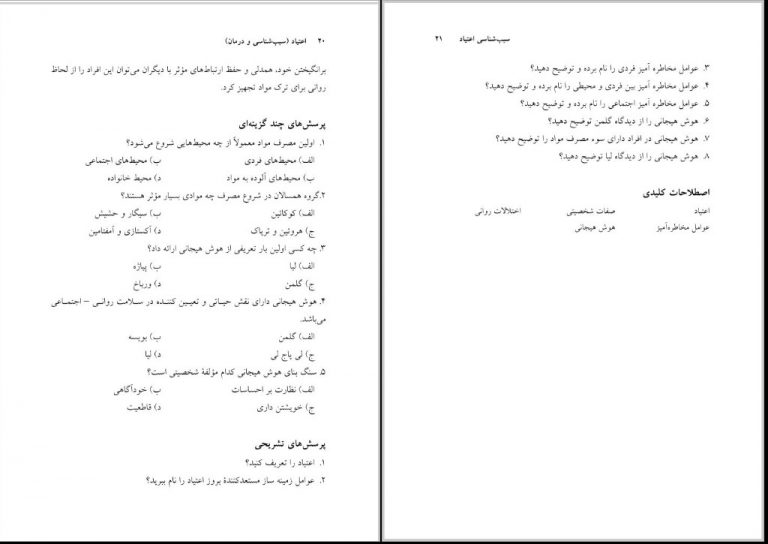 ۲۰ اعتیاد (سبب‌شناسی و درمان)
برانگیختن خود، همدلی و حفظ ارتباط‌های مؤثر با دیگران می‌توان این افراد را از لحاظ
روانی برای ترک مواد تجهیز کرد.
پرسش‌های چند گزینه‌ای
۱. اولین مصرف مواد معمولاً از چه محیط‌هایی شروع می‌شود؟
الف) محیط‌های فردی ب) محیط‌های اجتماعی
ب) محیط‌های آلوده به مواد د) محیط خانواده
۲.گروه همسالان در شروع مصرف چه موادی بسیار مؤثر هستند؟
الف) کوکائین ب) سیگار و حشیش
ج) هروئین و تریاک د) اکستازی و آمفتامین
۳. چه کسی اولین بار تعریفی از هوش هیجانی ارائه داد؟
الف) لیا ب) پیاژه
ج) گلمن د) ورباخ
۴. هوش هیجانی دارای نقش حیـاتی و تعیـین کننـده در سـلامت روانـی – اجتمـاعی
می‌باشد.
الف) گلمن ب) بویسه
ج) لی یاج لی د) لیا
۵. سنگ بنای هوش هیجانی کدام مؤلفهٔ شخصیتی است؟
الف) نظارت بر احساسات ب) خودآگاهی
ج) خویشتن داری د) قاطعیت
پرسش‌های تشریحی
۱. اعتیاد را تعریف کنید؟
۲. عوامل زمینه ساز مستعدکنندهٔ بروز اعتیاد را نام ببرید؟
سبب‌شناسی اعتیاد ۲۱
۳. عوامل مخاطره آمیز فردی را نام برده و توضیح دهید؟
۴. عوامل مخاطره آمیز بین فردی و محیطی را نام برده و توضیح دهید؟
۵. عوامل مخاطره آمیز اجتماعی را نام برده و توضیح دهید؟
۶. هوش هیجانی را از دیدگاه گلمن توضیح دهید؟
۷. هوش هیجانی در افراد دارای سوء مصرف مواد را توضیح دهید؟
۸. هوش هیجانی را از دیدگاه لیا توضیح دهید؟
اصطلاحات کلیدی
اعتیاد صفات شخصیتی اختلالات روانی
عوامل مخاطره‌آمیز هوش هیجانی